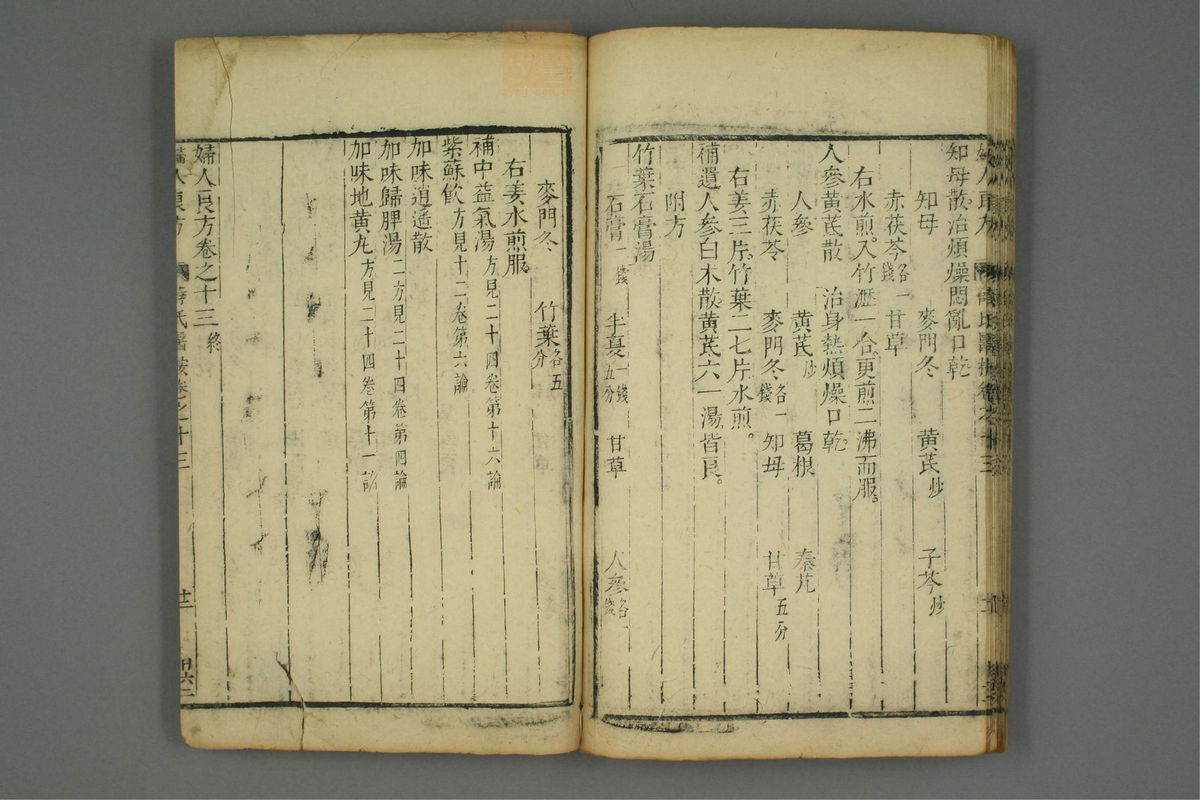 知母散治煩燥悶亂口乾
知母 麥門冬 黃芪炒 子芩炒
赤茯苓各一錢 甘草
右水煎入竹瀝一合更煎二沸而服
人參黃芪散 治身熱煩燥口乾
人參 黃芪炒 葛根 秦艽
赤茯苓 麥門冬各一錢 知母 甘草五分
右姜三片竹葉二七片水煎
補遺人參白朮散黃芪六一湯皆良
附方
竹葉石膏湯
石膏一錢 半夏一錢五分 甘草 人參各一錢
麥門冬 竹葉各五分
右姜水煎服
補中益氣湯方見二十四卷第十六論
紫蘇飲方見十二卷第六論
加味逍遙散
加味歸脾湯二方見二十四卷第四論
加味地黃丸方見二十四卷第十一論
婦人良方卷之十三終
婦人良方 薛氏醫按卷之十三